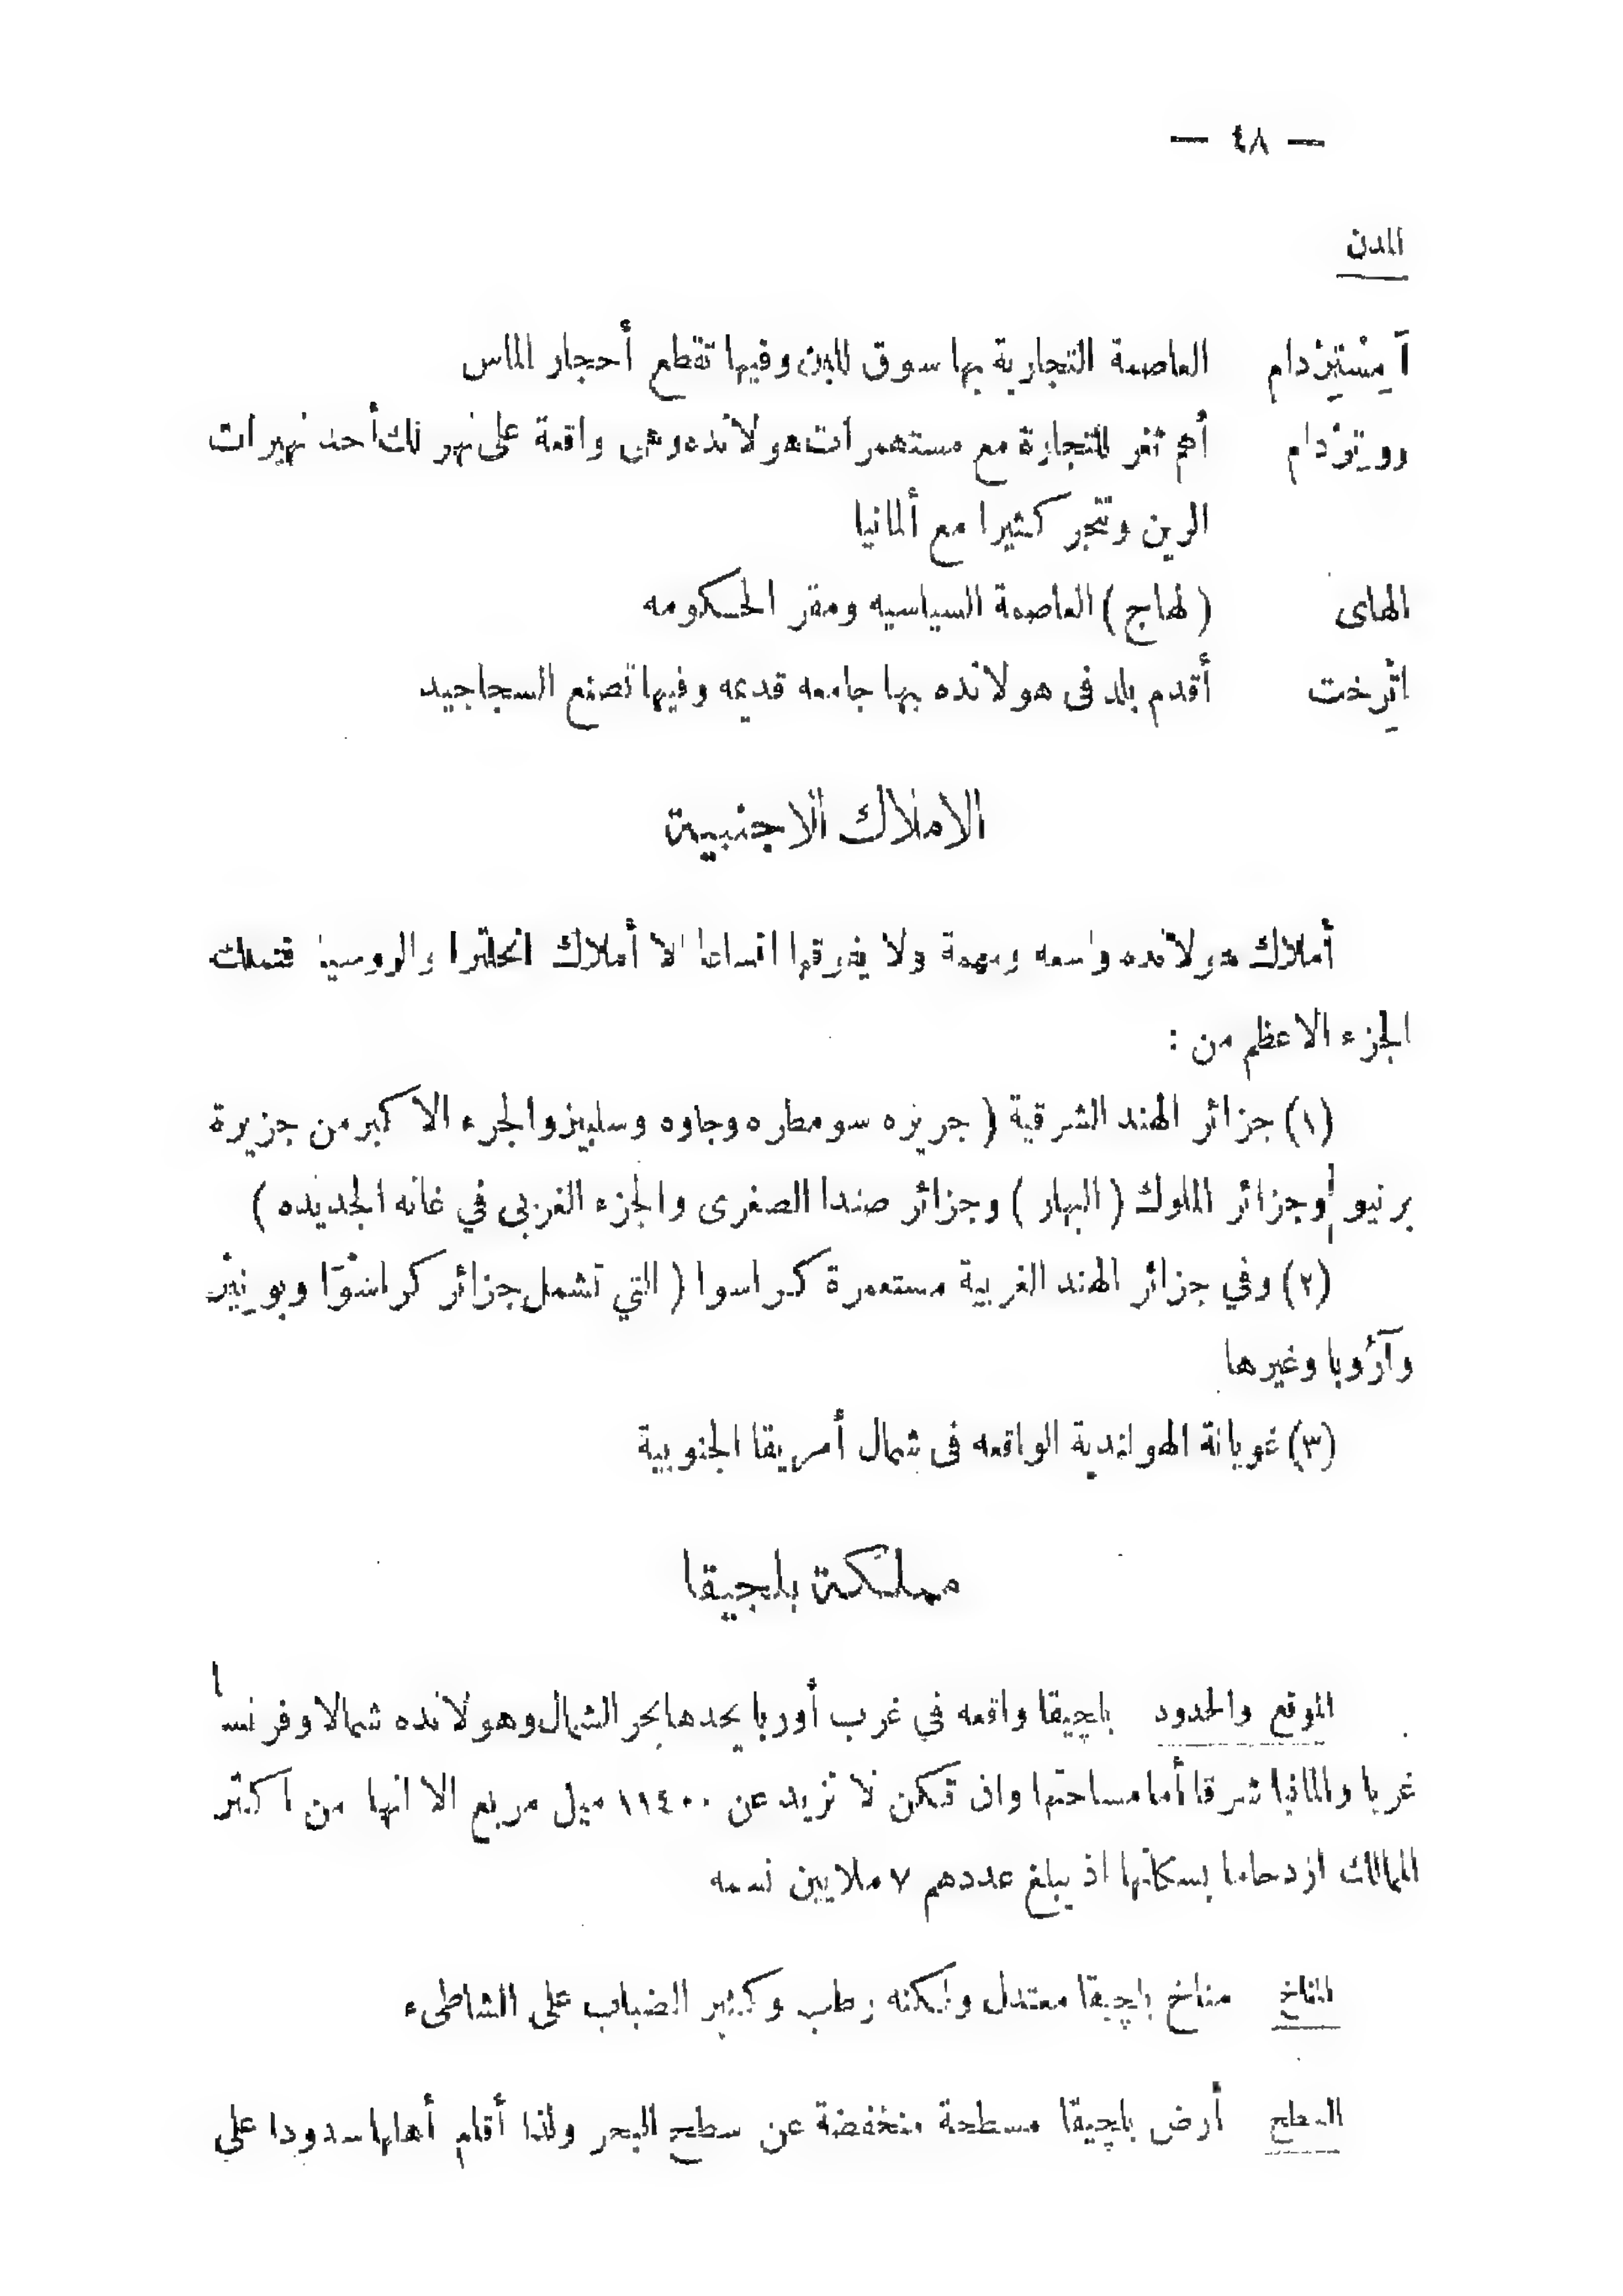 — ٤٨ —
المدن
آمِسْتِيرْدام العاصمة التجارية بها سوق للبن وفيها تقطع أحجار الماس
روتِرْدام أهم ثغر للتجارة مع مستعمرات هولانده وهى واقعة على نهر لك أحد نهيرات
الرين وتتجر كثيرا مع ألمانيا
الهاى ( لهاج ) العاصمة السياسيه ومقر الحكومه
اتْرِخت أقدم بلد فى هولانده بها جامعه قديمه وفيها تصنع السجاجيد
الاملاك الاجنبية
أملاك هولانده واسعه ومهمة ولا يفوقها اتساعا الا أملاك انجلترا والروسيا فتملك
الجزء الاعظم من :
(١) جزائر الهند الشرقية ( جريزه سومطاره وجاوه وسلبيز والجزء الاكبر من جزيرة
برنيو وجزائر الملوك ( البهار ) وجزائر صندا الصغرى والجزء الغربى في غانه الجديده )
(٢) وفي جزائر الهند الغربية مستعمرة كراسوا ( التي تشمل جزائر كراسْوَا وبونيْر
وآرُوبا وغيرها
(٣) غويانة الهولندية الواقعه فى شمال أمريقا الجنوبية
مملكة بلجيقا
الموقع والحدود بلچيقا واقعه في غرب أوربا يحدها بحر الشمال وهولانده شمالا وفرنسا
غربا والمانيا شرقا أما مساحتها وان تكن لا تزيد عن ١١٤٠٠ ميل مربع الا انها من اكثر
الممالك ازدحاما بسكانها اذ يبلغ عددهم ٧ ملايين نسمه
المناخ مناخ بلچيقا معتدل ولكنه رطب وكثير الضباب على الشاطىء
السطح أرض بلچيقا مسطحة منخفضة عن سطح البحر ولذا أقام أهلها سدودا على